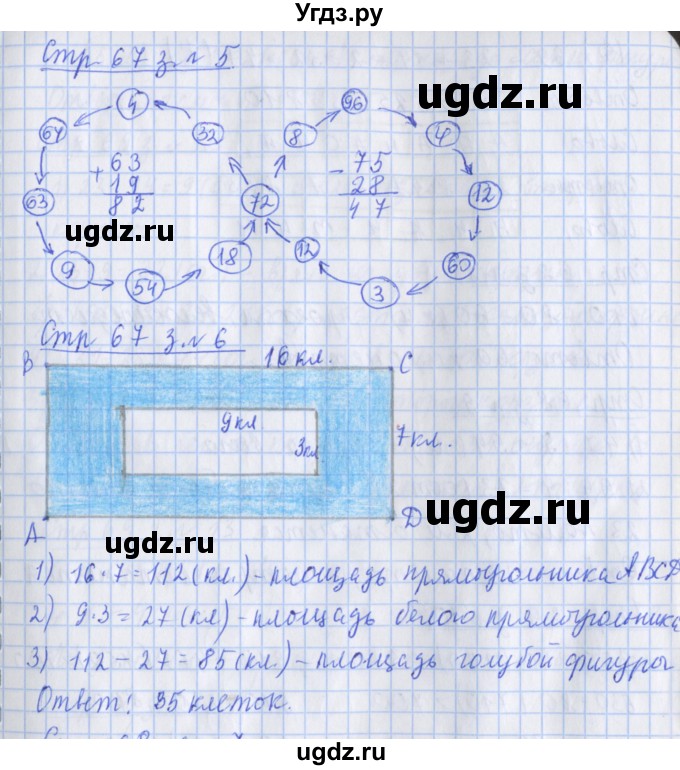 Угдз.ру
Стр 67 з.№ 5
ugdz.ru
4
96
64
32
8
4
+ 63
19
82
- 75
28
47
63
72
12
ugdz.ru
9
54
18
12
3
60
Стр 67 з.№ 6
B
16 кл.
C
9 кл
3 кл
7 кл.
ugdz.ru
A
D
1) 16·7=112 (кл.) - площадь прямоугольника ABCD
2) 9·3=27 (кл) - площадь белого прямоугольника
3) 112-27=85 (кл.) - площадь голубой фигуры
ugdz.ru
Ответ: 85 клеток.
ugdz.ru